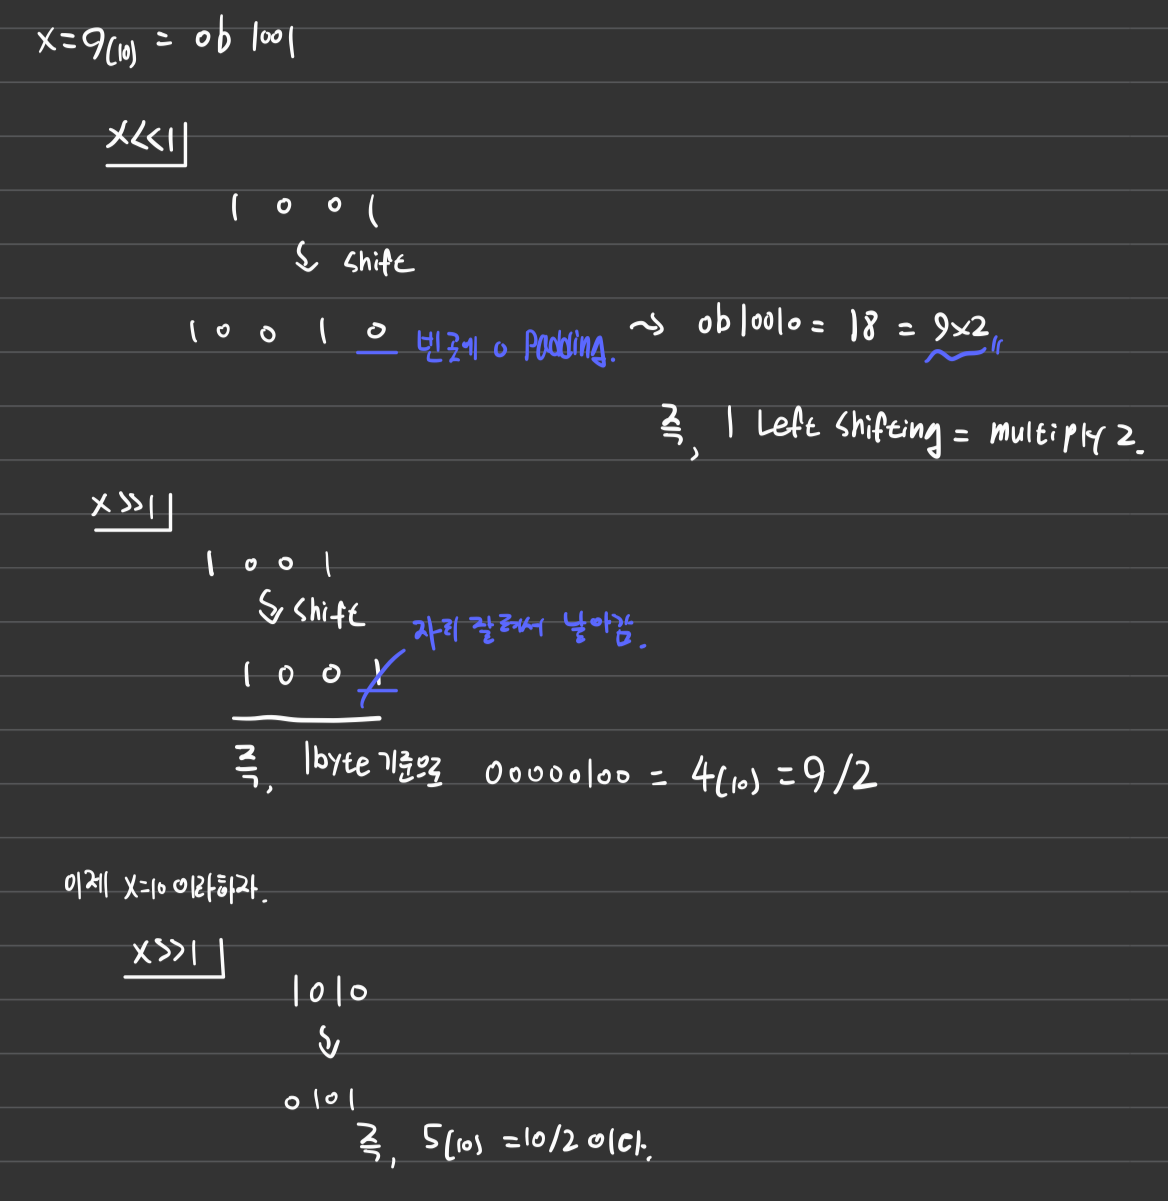 x=9(10) = 0b 1001
x<<1
1 0 0 1
shift
1 0 0 1 0 빈곳에 0 Padding. ~> 0b10010 = 18 = 9x2
즉, 1 Left shifting = multiply 2.
x>>1
1 0 0 1
shift
자리 잘려서 날아감.
1 0 0 1
즉, 1byte 기준으로 00000100 = 4(10) = 9/2
이제 x=10 이라하자.
x>>1
1010
0101
즉, 5(10) = 10/2 이다.